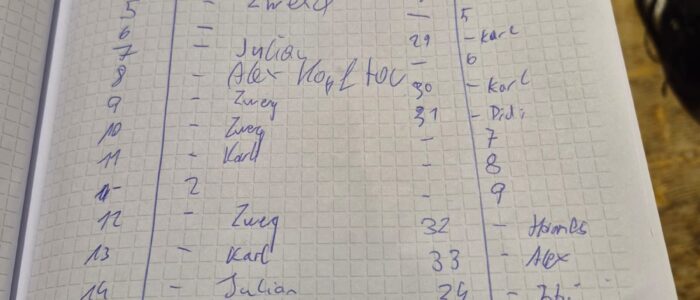 5 - Zwerg
6 -
7 - Julian
8 - Alex Kopf
9 - Zwerg
10 - Zwerg
11 - Karl
- 2
12 - Zwerg
13 - Karl
14 - Julian
- 5
29 - Karl
- 6
30 - Karl
31 - Didi
- 7
- 8
- 9
32 - Hannes
33 - Alex
34 -